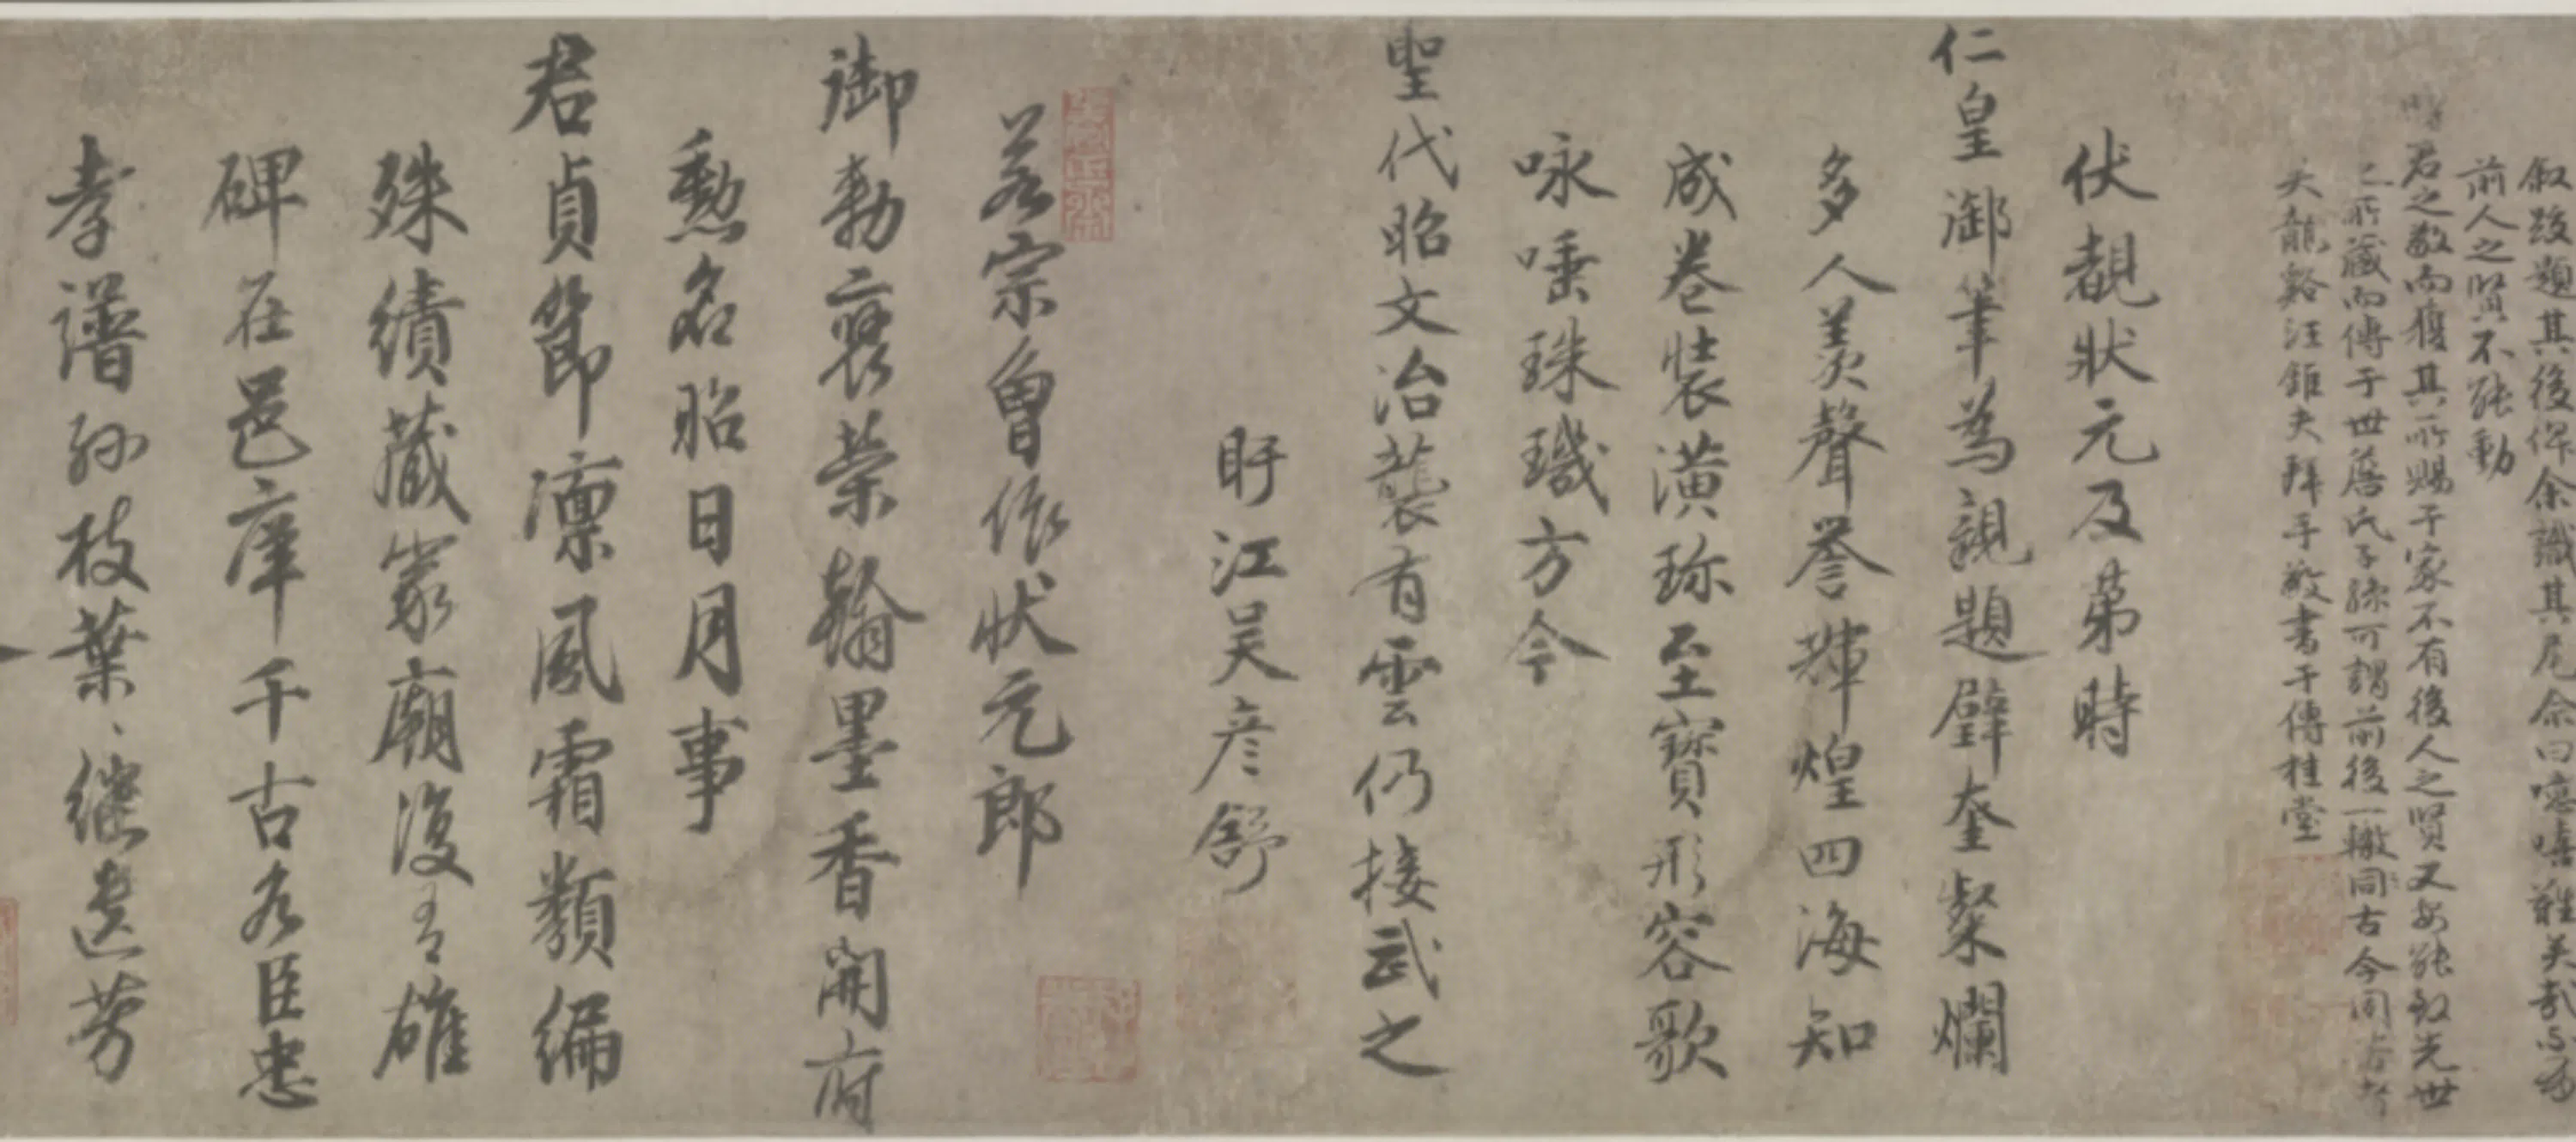 叙跋題其後俾余識其尾余曰噫嘻難矣哉不
前人之賢不能動
君之敬而獲其所賜于家不有後人之賢又安能敬先世
之所藏而傳于世蔡氏子孫可謂前後一轍同古今同
夫龍谿汪鉅夫拜手敬書于傳桂堂
伏覩狀元及第時
仁皇御筆為親題璧奎粲爛
多人羨聲譽輝煌四海知
成卷裝潢珎至寶形容歌
咏唾珠璣方今
聖代昭文治蘢有雲仍接武之
盱江吴彦舒
若宗曾作狀元郎
御勅襃榮翰墨香開府
勲名昭日月事
君貞節凛風霜類編
殊績蔵家廟復有確
碑在邑庠千古名臣忠
孝譜孙枝葉、继遺芳